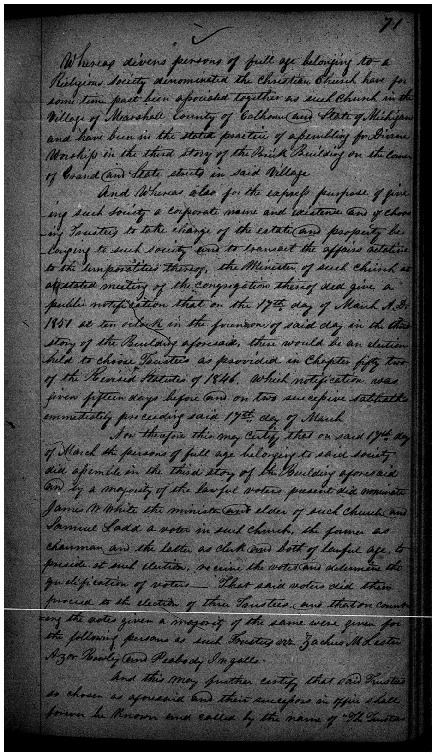 71
Whereas divers persons of full age belonging to a
Religious Society denominated the Christian Church have for
some time past been associated together as such Church in the
Village of Marshall County of Calhoun and State of Michigan
and have been in the stated practice of assembling for Divine
Worship in the third story of the Brick Building on the corner
of Grand and State streets in said Village
And Whereas also for the express purpose of giv
ing such Society a corporate name and existence and of choos
ing Trustees to take charge of the estate and property be
longing to such society and to transact the affairs relative
to the temporalities thereof, the Minister of such Church at
a stated meeting of the congregation thereof did give a
public notification that on the 17th day of March A.D.
1851 at ten oclock in the forenoon of said day in the third
story of the Building aforesaid, there would be an election
held to choose Trustees as provided in Chapter fifty two
of the Revised Statutes of 1846. Which notification was
given fifteen days before and on two successive sabbaths
immediately preceeding said 17th day of March
Now therefore this may certify that on said 17th day
of March the persons of full age belonging to said society
did assemble in the third story of the Building aforesaid
and by a majority of the lawful voters present did nominate
James W White the minister and elder of such Church and
Samuel Ladd a voter in such church, the former as
chairman and the latter as clerk and both of lawful age, to
preside at such election, receive the votes and determine the
qualification of voters — That said voters did then
proceed to the election of three Trustees and that on count
ing the votes given a majority of the same were given for
the following persons as such Trustees viz
and Peabody Ingalls.
And this may further certify that said Trustees
so chosen as aforesaid and their successors in office shall
forever be known and called by the name of "The Trustees